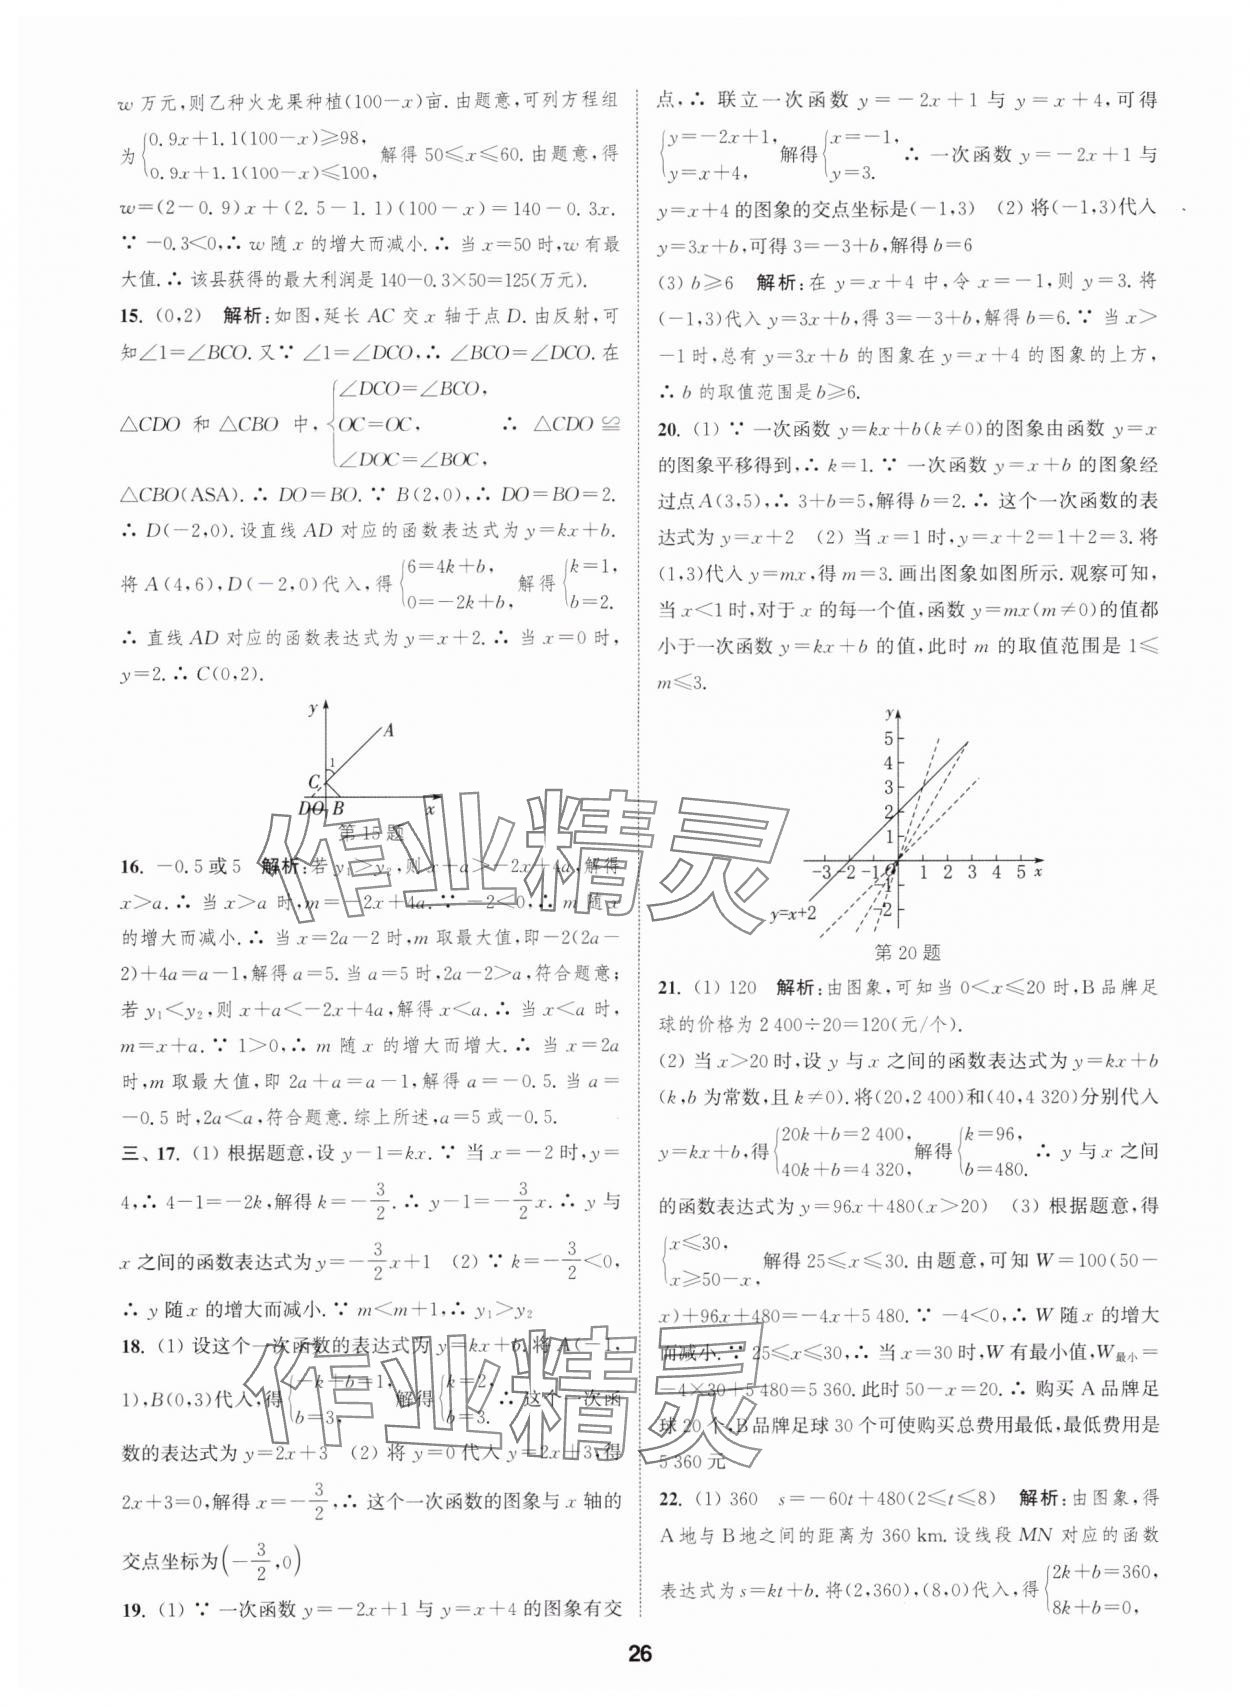 w万元,则乙种火龙果种植(100-x)亩.由题意,可列方程组
为{0.9x+1.1(100-x)≥98,
0.9x+1.1(100-x)≤100, 解得50≤x≤60.由题意,得
w=(2-0.9)x+(2.5-1.1)(100-x)=140-0.3x.
∵ -0.3<0,∴ w随x的增大而减小.∴ 当x=50时,w有最
大值.∴ 该县获得的最大利润是140-0.3×50=125(万元).
15. (0,2) 解析:如图,延长AC交x轴于点D.由反射,可
知∠1=∠BCO.又∵ ∠1=∠DCO,∴ ∠BCO=∠DCO.在
△CDO和△CBO中,{∠DCO=∠BCO,
OC=OC,
∠DOC=∠BOC, ∴ △CDO≌
△CBO(ASA).∴ DO=BO.∵ B(2,0),∴ DO=BO=2.
∴ D(-2,0).设直线AD对应的函数表达式为y=kx+b.
将A(4,6),D(-2,0)代入,得{6=4k+b,
0=-2k+b, 解得{k=1,
b=2.
∴ 直线AD对应的函数表达式为y=x+2.∴ 当x=0时,
y=2.∴ C(0,2).
y
A
1
C
D O B x
第15题
16. -0.5或5 解析:若y₁>y₂,则x+a>-2x+4a,解得
x>a.∴ 当x>a时,m=-2x+4a.∵ -2<0,∴ m随x
的增大而减小.∴ 当x=2a-2时,m取最大值,即-2(2a-
2)+4a=a-1,解得a=5.当a=5时,2a-2>a,符合题意;
若y₁<y₂,则x+a<-2x+4a,解得x<a.∴ 当x<a时,
m=x+a.∵ 1>0,∴ m随x的增大而增大.∴ 当x=2a
时,m取最大值,即2a+a=a-1,解得a=-0.5.当a=
-0.5时,2a<a,符合题意.综上所述,a=5或-0.5.
三、17. (1) 根据题意,设y-1=kx.∵ 当x=-2时,y=
4,∴ 4-1=-2k,解得k=-3/2.∴ y-1=-3/2x.∴ y与
x之间的函数表达式为y=-3/2x+1 (2) ∵ k=-3/2<0,
∴ y随x的增大而减小.∵ m<m+1,∴ y₁>y₂
18. (1) 设这个一次函数的表达式为y=kx+b.将A(-1,
1),B(0,3)代入,得{-k+b=1,
b=3, 解得{k=2,
b=3. ∴ 这个一次函
数的表达式为y=2x+3 (2) 将y=0代入y=2x+3,得
2x+3=0,解得x=-3/2,∴ 这个一次函数的图象与x轴的
交点坐标为(-3/2,0)
19. (1) ∵ 一次函数y=-2x+1与y=x+4的图象有交
点,∴ 联立一次函数y=-2x+1与y=x+4,可得
{y=-2x+1,
y=x+4, 解得{x=-1,
y=3. ∴ 一次函数y=-2x+1与
y=x+4的图象的交点坐标是(-1,3) (2) 将(-1,3)代入
y=3x+b,可得3=-3+b,解得b=6
(3) b≥6 解析:在y=x+4中,令x=-1,则y=3.将
(-1,3)代入y=3x+b,得3=-3+b,解得b=6.∵ 当x>
-1时,总有y=3x+b的图象在y=x+4的图象的上方,
∴ b的取值范围是b≥6.
20. (1) ∵ 一次函数y=kx+b(k≠0)的图象由函数y=x
的图象平移得到,∴ k=1.∵ 一次函数y=x+b的图象经
过点A(3,5),∴ 3+b=5,解得b=2.∴ 这个一次函数的表
达式为y=x+2 (2) 当x=1时,y=x+2=1+2=3.将
(1,3)代入y=mx,得m=3.画出图象如图所示.观察可知,
当x<1时,对于x的每一个值,函数y=mx(m≠0)的值都
小于一次函数y=kx+b的值,此时m的取值范围是1≤
m≤3.
y
5
4
3
2
1
-3 -2 -1 O 1 2 3 4 5 x
-1
-2
y=x+2
第20题
21. (1) 120 解析:由图象,可知当0<x≤20时,B品牌足
球的价格为2 400÷20=120(元/个).
(2) 当x>20时,设y与x之间的函数表达式为y=kx+b
(k,b为常数,且k≠0).将(20,2 400)和(40,4 320)分别代入
y=kx+b,得{20k+b=2 400,
40k+b=4 320, 解得{k=96,
b=480. ∴ y与x之间
的函数表达式为y=96x+480(x>20) (3) 根据题意,得
{x≤30,
x≥50-x, 解得25≤x≤30.由题意,可知W=100(50-
x)+96x+480=-4x+5 480.∵ -4<0,∴ W随x的增大
而减小.∵ 25≤x≤30,∴ 当x=30时,W有最小值,W最小=
-4×30+5 480=5 360.此时50-x=20.∴ 购买A品牌足
球20个,B品牌足球30个可使购买总费用最低,最低费用是
5 360元
22. (1) 360 s=-60t+480(2≤t≤8) 解析:由图象,得
A地与B地之间的距离为360 km.设线段MN对应的函数
表达式为s=kt+b.将(2,360),(8,0)代入,得{2k+b=360,
8k+b=0,
26
作业精灵
作业精灵